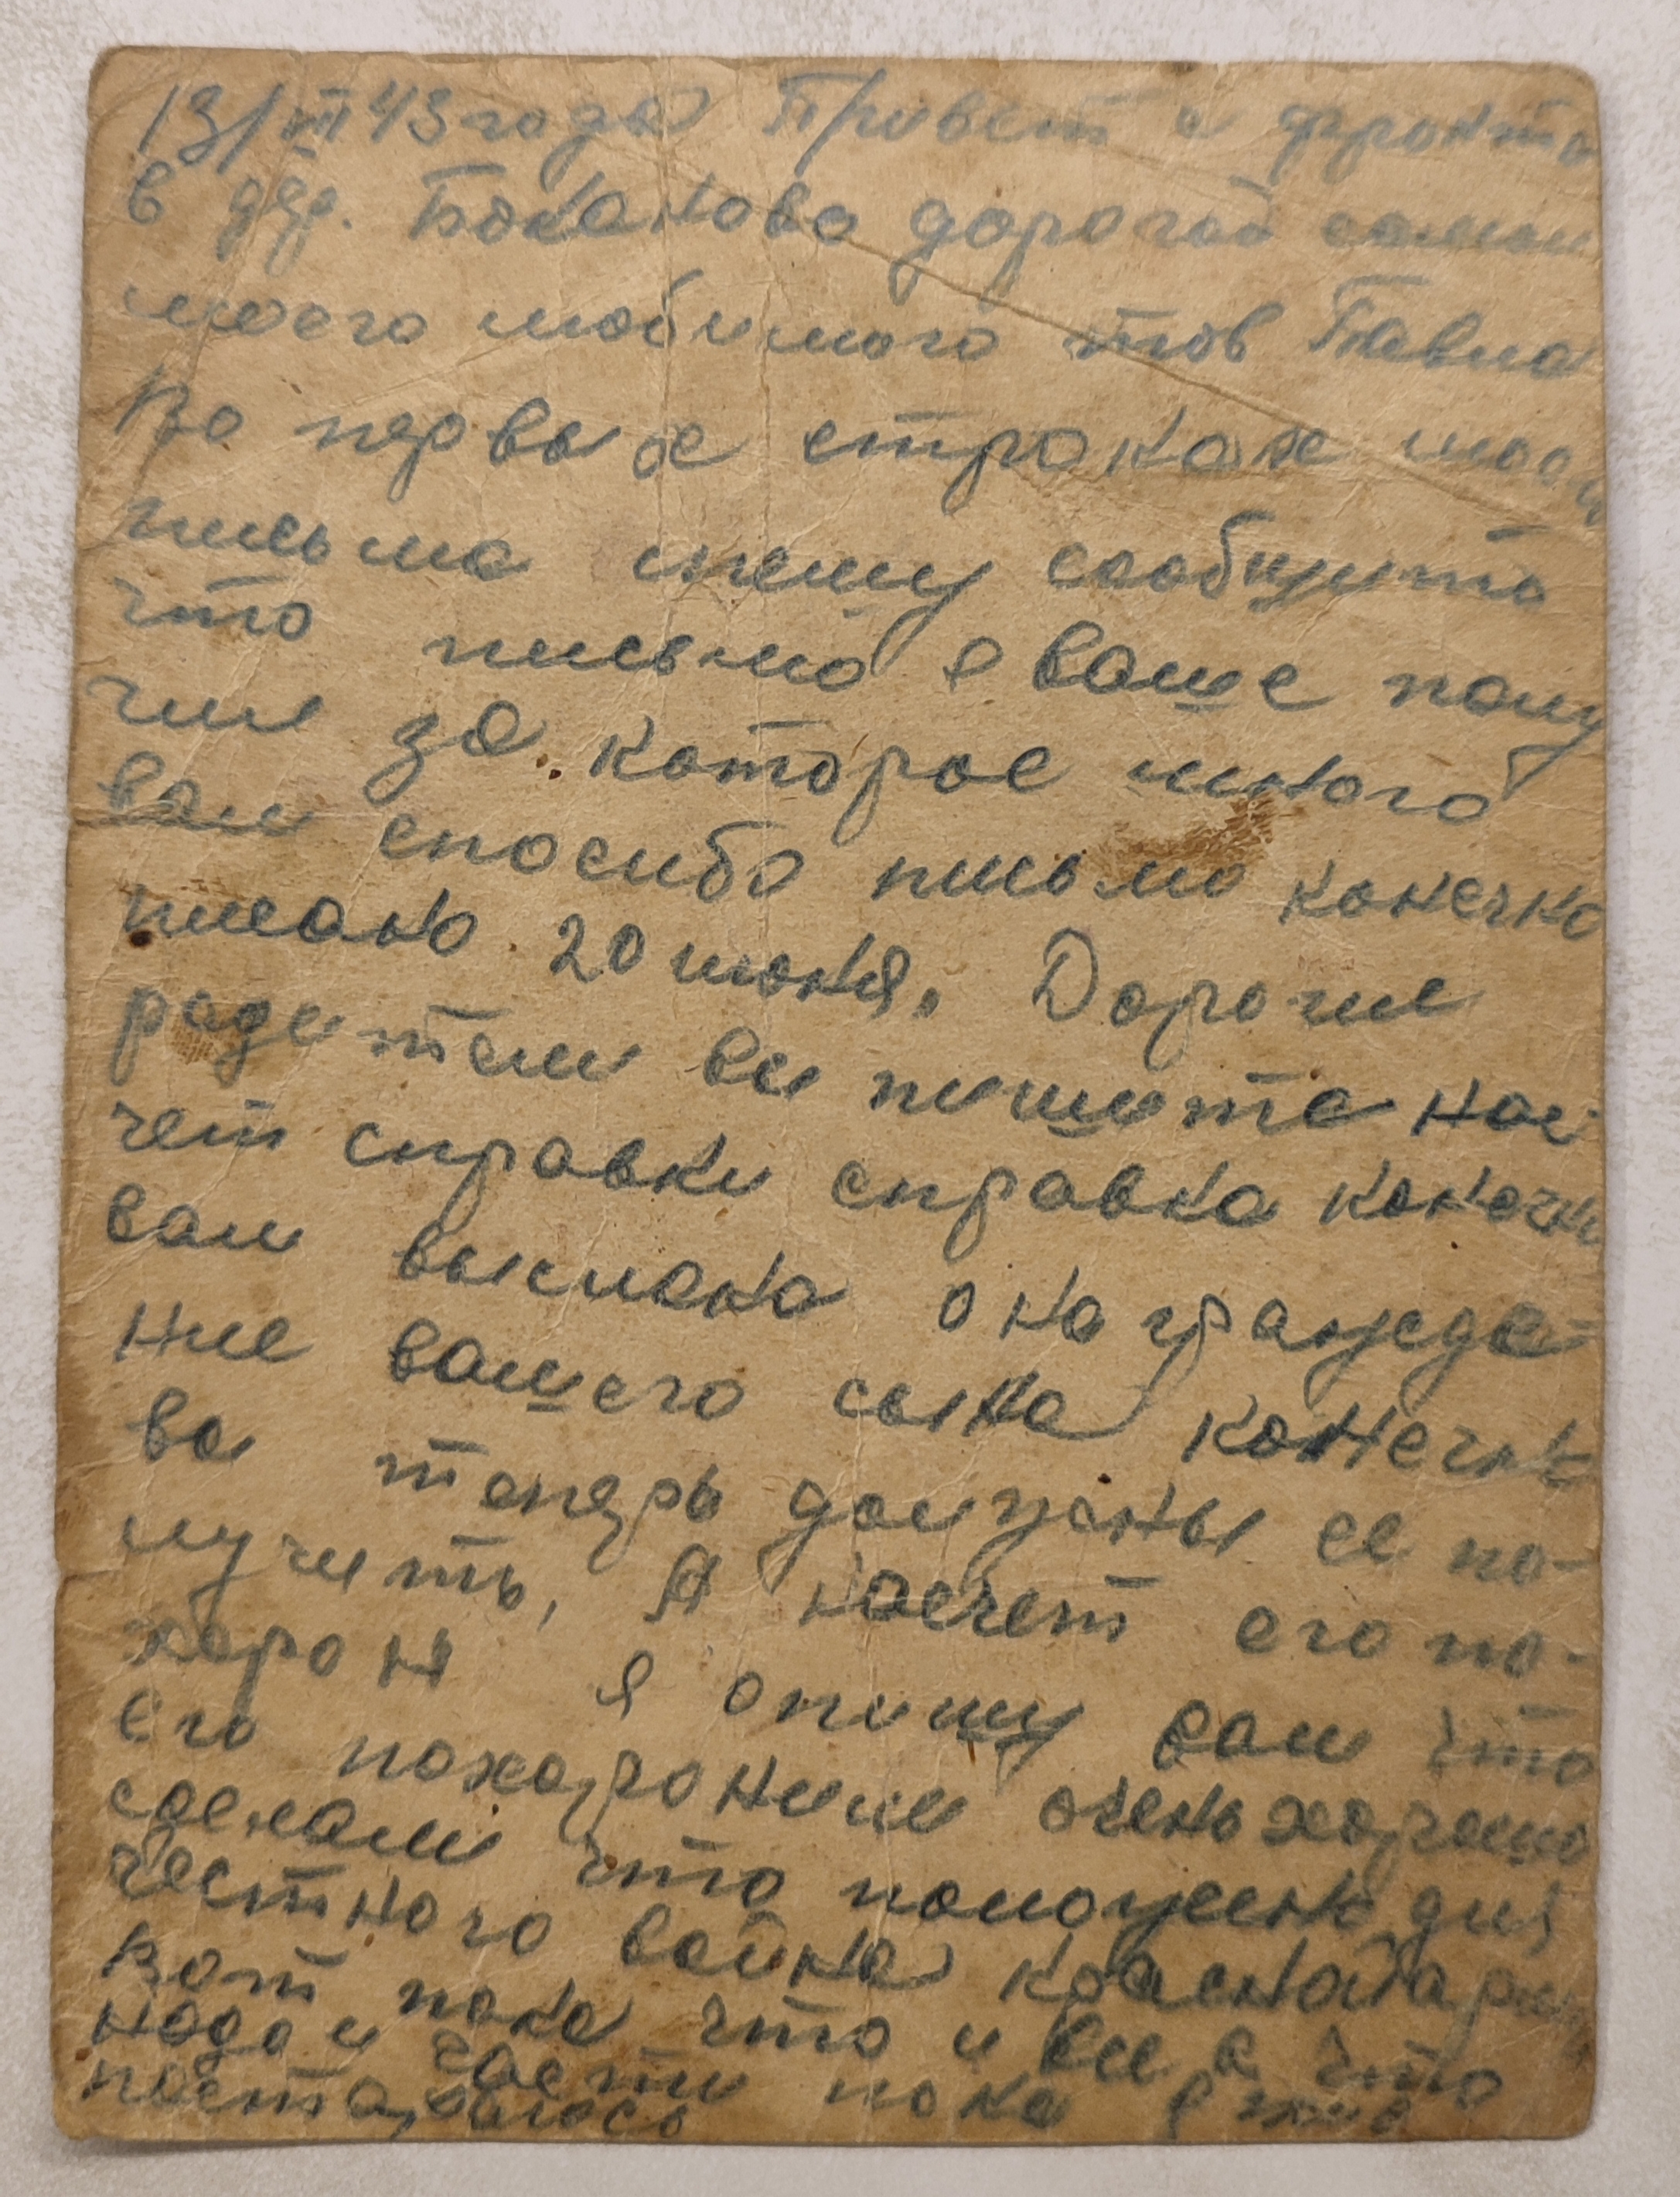 13/III 43 года Привет с фронта
в дер. Боканово дорогой семьи
моего любимого тов Павла
Во первых строках моего
письма спешу сообщить
что письмо я ваше полу
чил за которое много
вам спосибо письмо конечно
писано 20 июня. Дорогие
родители вы пишите нас-
чет справки справка конечно
вам выслана о награжде-
ние вашего сына конечно
вы теперь должны ее по-
лучить, А насчет его по-
хорон я опишу вам что
его похоронили очень хорошо
сделали что положено для
честного воина красноарм
Вот пока что и все а что
надо и части пока я жив
постараюсь